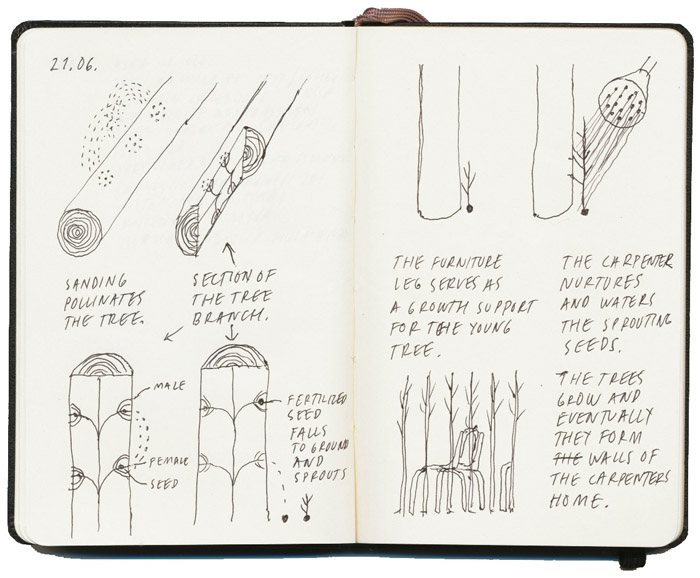 21.06.
SANDING
POLLINATES
THE TREE.
SECTION OF
THE TREE
BRANCH.
MALE
FEMALE
SEED
FERTILIZED
SEED
FALLS
TO GROUND
AND
SPROUTS
THE FURNITURE
LEG SERVES AS
A GROWTH SUPPORT
FOR THE YOUNG
TREE.
THE CARPENTER
NURTURES
AND WATERS
THE SPROUTING
SEEDS.
THE TREES
GROW AND
EVENTUALLY
THEY FORM
THE WALLS OF
THE CARPENTERS
HOME.